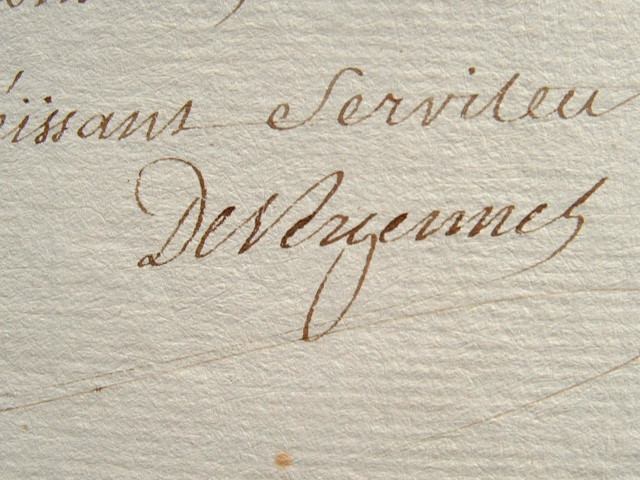 éissant Serviteu
De Vergennes